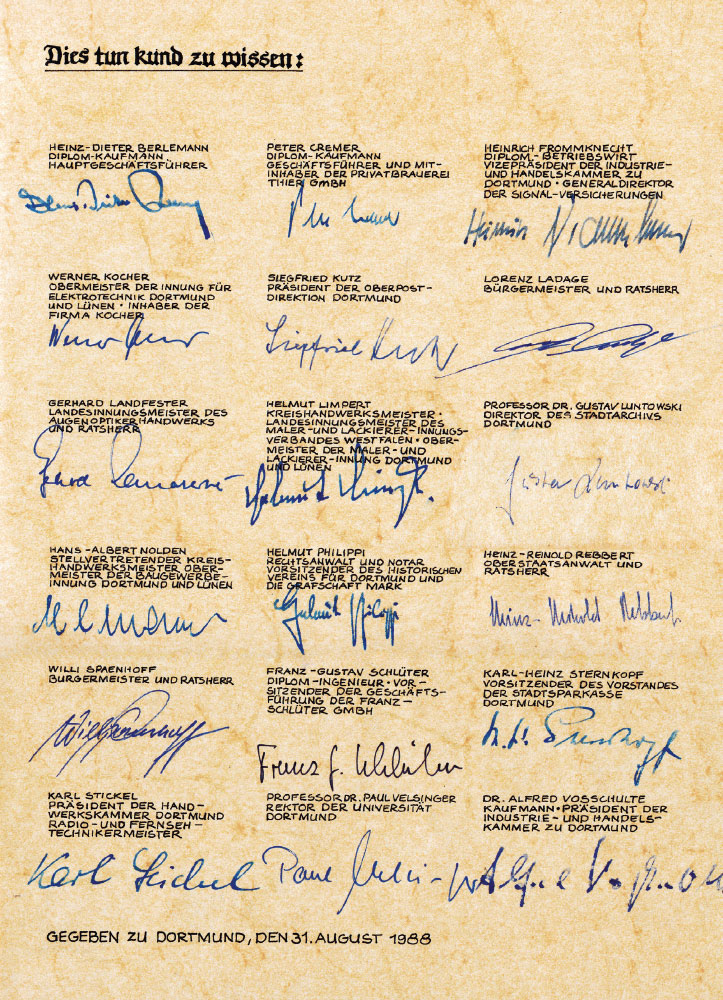 Dies tun kund zu wissen:
HEINZ-DIETER BERLEMANN
DIPLOM-KAUFMANN
HAUPTGESCHÄFTSFÜHRER
PETER CREMER
DIPLOM-KAUFMANN
GESCHÄFTSFÜHRER UND MIT-
INHABER DER PRIVATBRAUEREI
THIER GMBH
HEINRICH FROMMKNECHT
DIPLOM-BETRIEBSWIRT
VIZEPRÄSIDENT DER INDUSTRIE-
UND HANDELSKAMMER ZU
DORTMUND · GENERALDIREKTOR
DER SIGNAL-VERSICHERUNGEN
WERNER KOCHER
OBERMEISTER DER INNUNG FÜR
ELEKTROTECHNIK DORTMUND
UND LÜNEN · INHABER DER
FIRMA KOCHER
SIEGFRIED KUTZ
PRÄSIDENT DER OBERPOST-
DIREKTION DORTMUND
Siegfried Kutz
LORENZ LADAGE
BÜRGERMEISTER UND RATSHERR
GERHARD LANDFESTER
LANDESINNUNGSMEISTER DES
AUGENOPTIKERHANDWERKS
UND RATSHERR
HELMUT LIMPERT
KREISHANDWERKSMEISTER ·
LANDESINNUNGSMEISTER DES
MALER-UND LACKIERER-INNUNGS-
VERBANDES WESTFALEN · OBER-
MEISTER DER MALER-UND
LACKIERER-INNUNG DORTMUND
UND LÜNEN
PROFESSOR DR. GUSTAV LUNTOWSKI
DIREKTOR DES STADTARCHIVS
DORTMUND
Gustav Luntowski
HANS-ALBERT NOLDEN
STELLVERTRETENDER KREIS-
HANDWERKSMEISTER OBER-
MEISTER DER BAUGEWERBE-
INNUNG DORTMUND UND LÜNEN
HELMUT PHILIPPI
RECHTSANWALT UND NOTAR
VORSITZENDER DES HISTORISCHEN
VEREINS FÜR DORTMUND UND
DIE GRAFSCHAFT MARK
Helmut Philippi
HEINZ-REINOLD REBBERT
OBERSTAATSANWALT UND
RATSHERR
Heinz-Reinold Rebbert
WILLI SPAENHOFF
BÜRGERMEISTER UND RATSHERR
Willi Spaenhoff
FRANZ-GUSTAV SCHLÜTER
DIPLOM-INGENIEUR · VOR-
SITZENDER DER GESCHÄFTS-
FÜHRUNG DER FRANZ-
SCHLÜTER GMBH
Franz G. Schlüter
KARL-HEINZ STERNKOPF
VORSITZENDER DES VORSTANDES
DER STADTSPARKASSE
DORTMUND
KARL STICKEL
PRÄSIDENT DER HAND-
WERKSKAMMER DORTMUND
RADIO-UND FERNSEH-
TECHNIKERMEISTER
Karl Stickel
PROFESSOR DR. PAUL VELSINGER
REKTOR DER UNIVERSITÄT
DORTMUND
DR. ALFRED VOSSCHULTE
KAUFMANN · PRÄSIDENT DER
INDUSTRIE-UND HANDELS-
KAMMER ZU DORTMUND
GEGEBEN ZU DORTMUND, DEN 31. AUGUST 1988